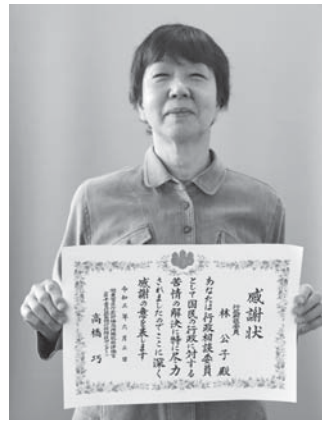 感謝状
行政相談委員
林 公子 殿
あなたは行政相談委員
として国民の行政に対する
苦情の解決に特に尽力
されましたのでここに深く
感謝の意を表します
高橋 巧